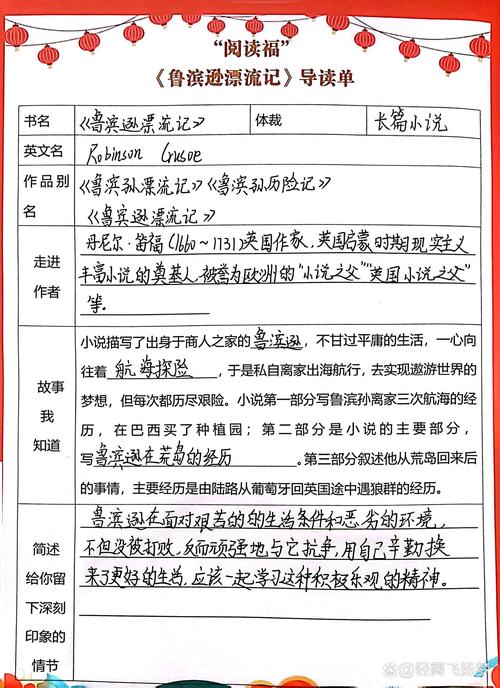 “阅读福”
《鲁滨逊漂流记》导读单
书名 《鲁滨逊漂流记》 体裁 长篇小说
英文名 Robinson Crusoe
作品别名 《鲁滨孙漂流记》《鲁滨孙历险记》
《鲁宾逊漂流记》
走进作者
丹尼尔·笛福(1660~1731)英国作家,英国启蒙时期现实主义
丰富小说的奠基人,被誉为欧洲的“小说之父”“英国小说之父”
等.
故事我知道
小说描写了出身于商人之家的鲁滨逊,不甘过平庸的生活,一心向
往着航海探险,于是私自离家出海航行,去实现遨游世界的
梦想,但每次都历尽艰险。小说第一部分写鲁滨孙离家三次航海的经
历,在巴西买了种植园;第二部分是小说的主要部分,
写鲁滨逊在荒岛的经历。第三部分叙述他从荒岛回来后
的事情,主要经历是由陆路从葡萄牙回英国途中遇狼群的经历。
简述给你留下深刻印象的情节
鲁滨逊在面对艰苦的的生活条件和恶劣的环境,
不但没被打败,反而顽强地与它抗争,用自己辛勤换
来了更好的生活,应该一起学习这种积极乐观的精神。